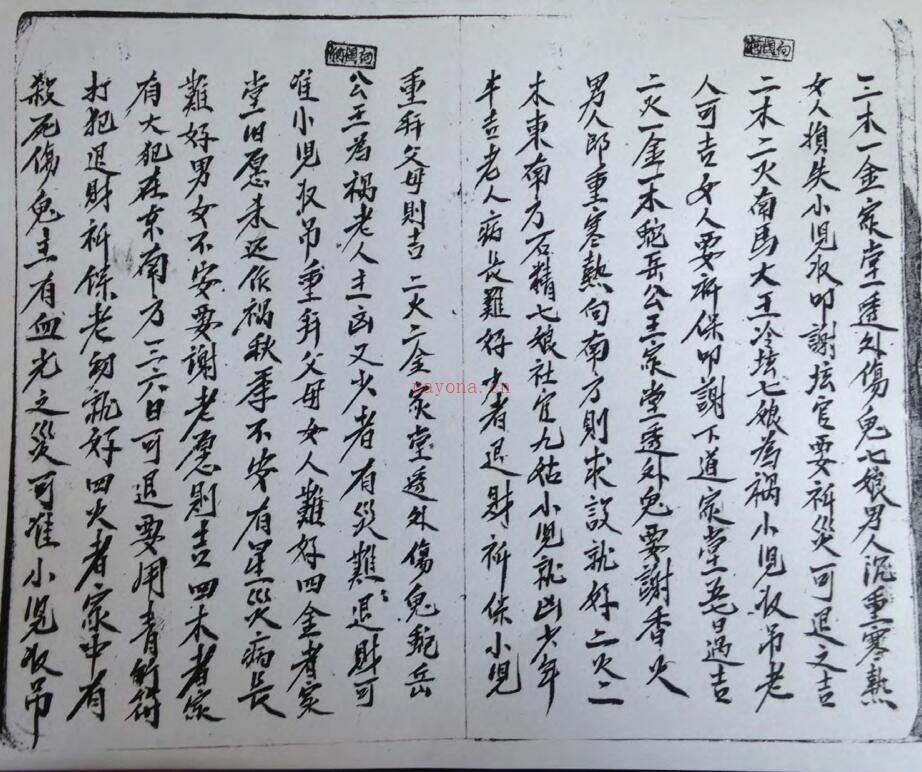 三木一金家堂透外傷鬼七娘男人沉重寒熱
女人損失小児收叩謝坛官要祈災可退之吉
二木二火南馬大王冷坛七娘為禍小児收吊老
人可吉女人要祈保叩謝下道家堂五七日過吉
二火一金一木 岳公王家堂透外鬼要謝香火
男人郎重寒熱向南方則求設就好二火二
木東南方石精七娘社官九姑小児就凶少年
半吉老人病長難好少者退財祈保小児
重拜父母則吉二火二金家堂透外傷鬼 岳
公王為禍老人主凶又少者有災難退財可
准小児收吊重拜父母女人難好四金者家
堂旧愿未还作禍秋季不安有星災病長
難好男女不安要謝老愿則吉四木者家
有大犯在东南方一三六日可退要用青竹
打犯退財祈保老幼就好四火者家中有
殺死傷鬼主有血光之災可准小児收吊
nayona.cn